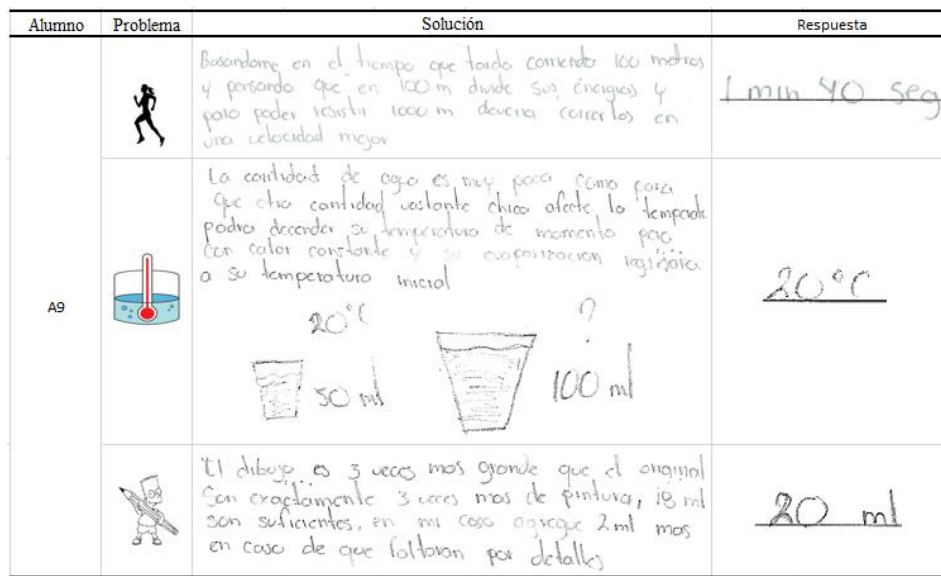 Alumno Problema Solución Respuesta
A9
Basandome en el tiempo que tarda corriendo 100 metros
y pensando que en 100 m divide sus energias y
para poder resistir 1000 m deveria correrlos en
una velocidad mejor
1 min 40 seg
La cantidad de agua es muy poca como para
que otra cantidad vastante chica afecte la
podra decender su temperatura de momento pero
con calor constante y su evaporizacion
a su temperatura inicial
20°C
?
50 ml
100 ml
20°C
El dibujo es 3 veces mas grande que el original
Son exactamente 3 veces mas de pintura, 18 ml
son suficientes, en mi caso agregue 2 ml mas
en caso de que faltaran por detalles
20 ml